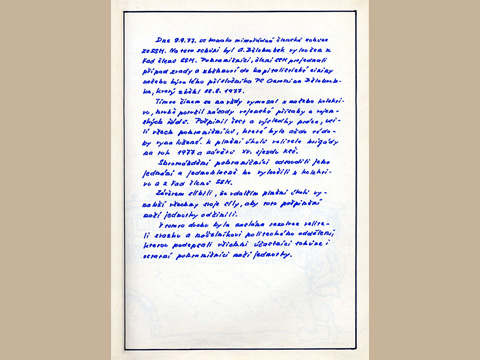 Dne 9.9.77. se konala mimořádná členská schůze
ZO SSM. Na této schůzi byl O. Bělohubek vyloučen z
řad členů SSM. Pohraničníci, členi SSM projednali
případ zrady a zběhnutí do kapitalistické ciziny
našeho bývalého příslušníka PS
který zběhl 28.8.1977.
Tímto činem se navždy vymazal z našeho kolekti-
vu, hrubě porušil zásady vojenské přísahy a vojen-
ských řádů. Pošpinil čest a výsledky práce, úsi-
lí všech pohraničníků, které bylo vždy
vynaložené k plnění úkolů velitele brigády
na rok 1977 a závěrů XV. sjezdu KSČ.
Shromáždění pohraničníci odsoudili jeho
jednání a jednohlasně ho vyloučili z kolekti-
vu a z řad členů SSM.
Závěrem slíbili, že v dalším plnění úkolů vy-
naloží všechny svoje síly, aby toto pošpinění
naší jednotky odčinili.
V tomto duchu byla zaslána rezoluce velite-
li svazku a náčelníkovi politického oddělení,
kterou podepsali všichni účastníci schůze i
ostatní pohraničníci naší jednotky.